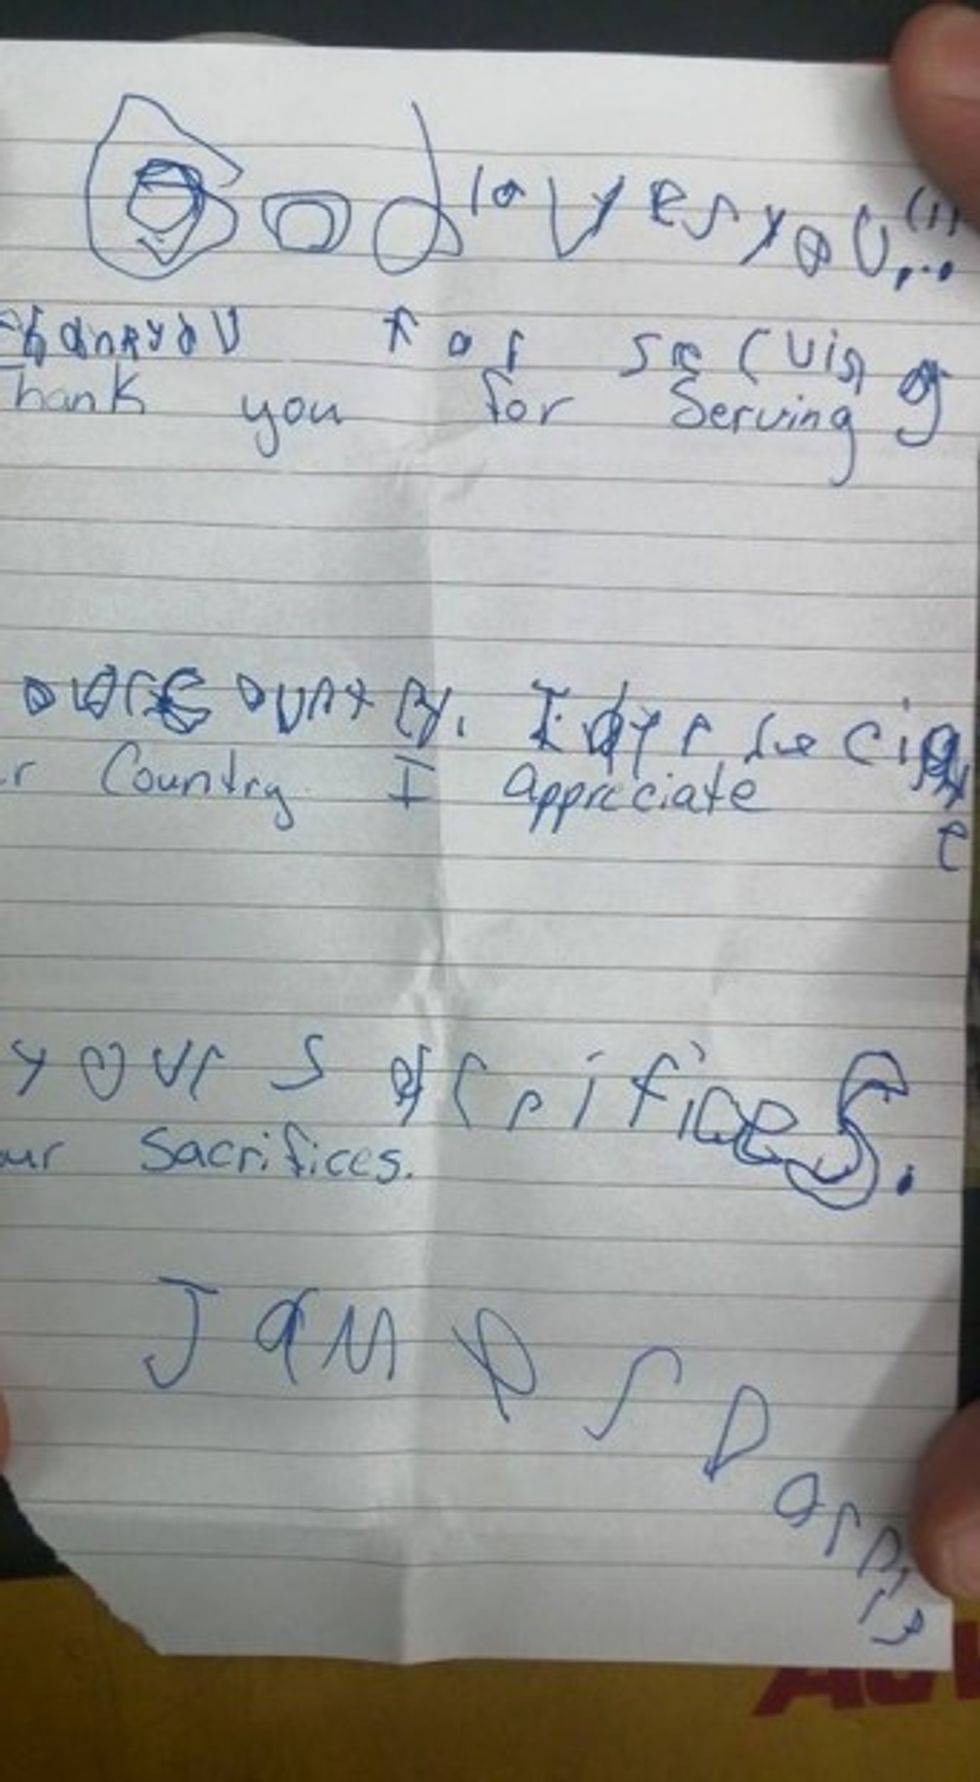 God loves you...
thankyou for serving
Thank you for Serving
our country. I appreciate
r Country I appreciate
your sacrifices.
ur Sacrifices.
James